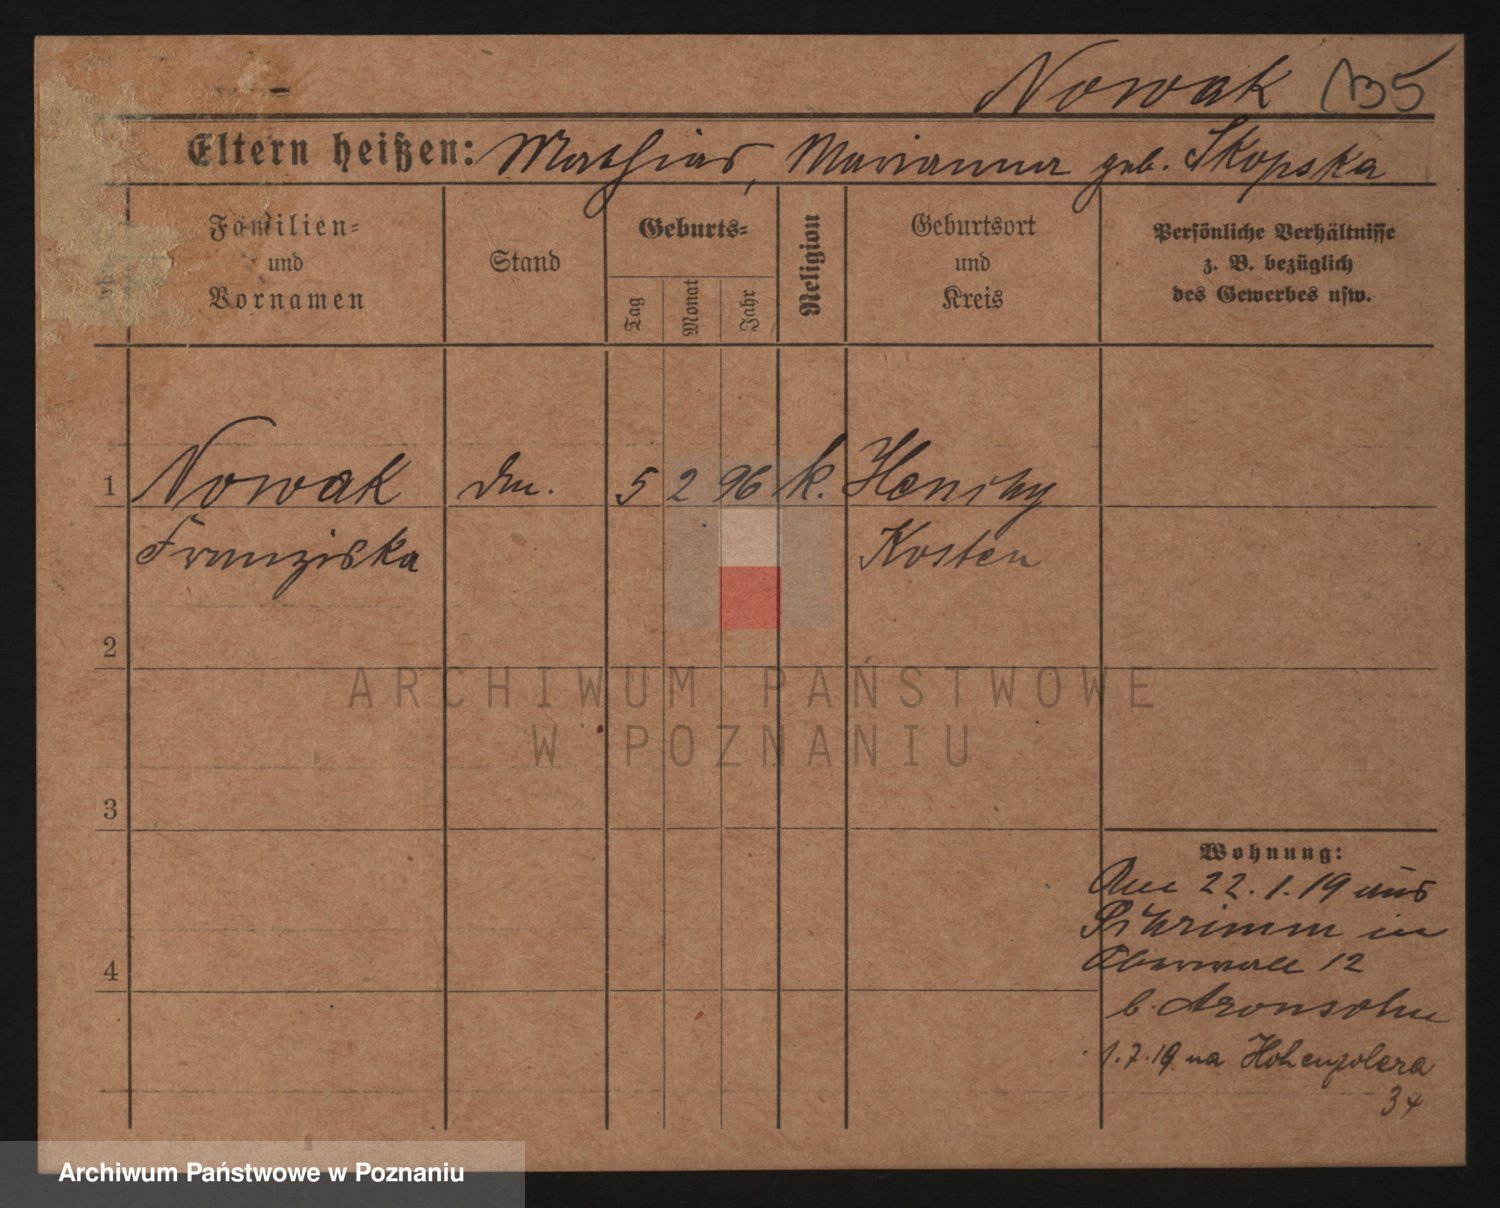 Nowak 135
Eltern heißen: Mathias, Marianna geb. Skopska
Familien-
und
Vornamen
Stand
Geburts-
Tag
Monat
Jahr
Religion
Geburtsort
und
Kreis
Persönliche Verhältnisse
z. B. bezüglich
des Gewerbes usw.
1 Nowak 5 2 96 k.
Franziska Kosten
2
3
4
Wohnung:
22.1.19 aus
Schrimm in
12
b. Aronsohn
1.7.19 na Hohenzolera
34
ARCHIWUM PAŃSTWOWE
W POZNANIU
Archiwum Państwowe w Poznaniu